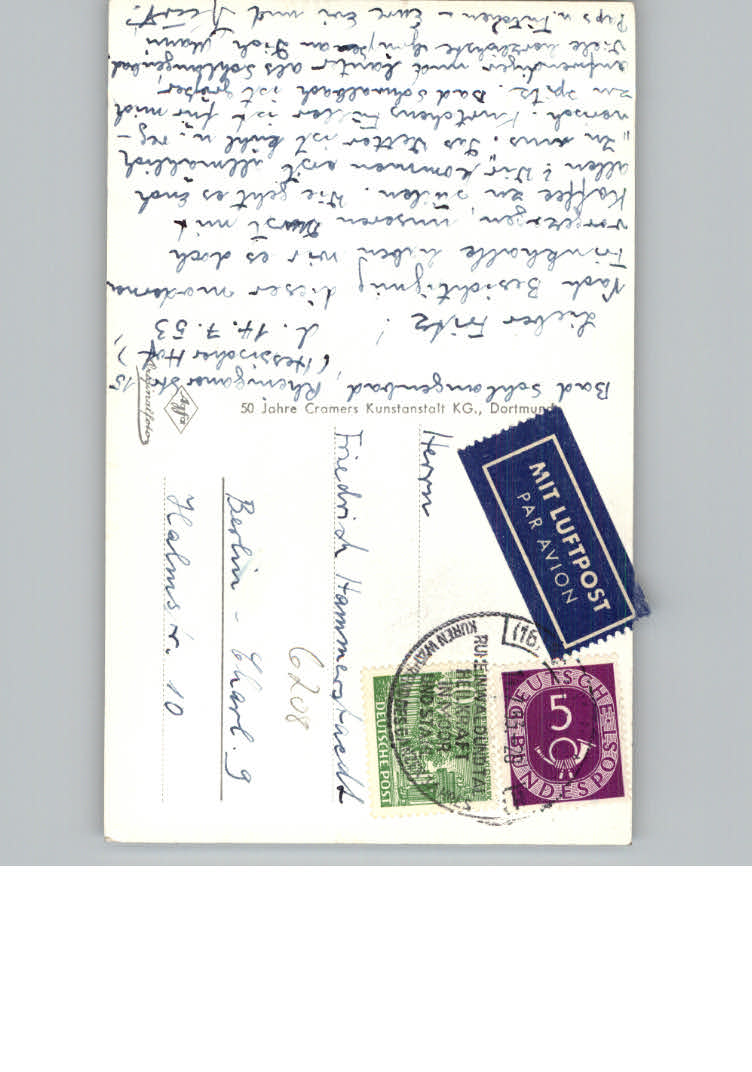 Bad Schlangenbad, Rheingauer Str. 15
(Hessischer Hof),
d. 14.7.53
Lieber Fritz!
Nach Besichtigung dieser moderne
Trinkhalle haben wir es doch
vorgezogen, unseren Durst mit
Kaffee zu stillen. Wie geht es Euch
allen? Wir kommen erst allmählich
"zu uns. Das Wetter ist kühl u. reg-
nerisch. Kurtchens Füller ist für mich
zu spitz. Bad Schwalbach ist größer,
aufwendiger und lauter als Schlangenbad.
Viele herzlichste an Dich, Mann
Paps u. - Eure Evi und Kurt.
Agfa
Originalfoto
50 Jahre Cramers Kunstanstalt KG., Dortmund
MIT LUFTPOST
PAR AVION
Herrn
Friedrich Hammerstaedt
Berlin - Charl. 9
Halmstr. 10
6208
10
DEUTSCHE POST
5
DEUTSCHE
BUNDESPOST
(16)